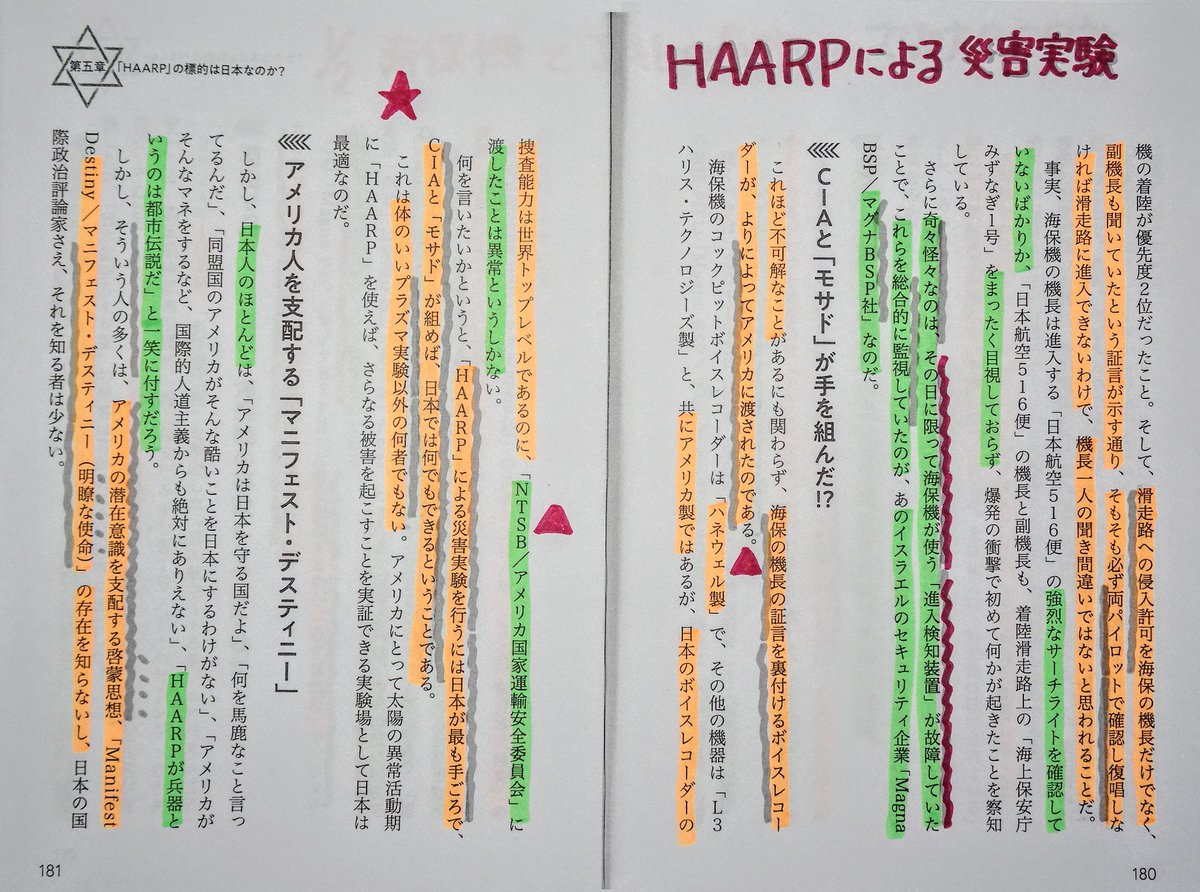 HAARPによる災害実験
機の着陸が優先度２位だったこと。そして、滑走路への侵入許可を海保の機長だけでなく、
副機長も聞いていたという証言が示す通り、そもそも必ず両パイロットで確認し復唱しな
ければ滑走路に進入できないわけで、機長一人の聞き間違いではないと思われることだ。
事実、海保機の機長は進入する「日本航空５１６便」の強烈なサーチライトを確認して
いないばかりか、「日本航空５１６便」の機長と副機長も、着陸滑走路上の「海上保安庁
みずなぎ１号」をまったく目視しておらず、爆発の衝撃で初めて何かが起きたことを察知
している。
さらに奇々怪々なのは、その日に限って海保機が使う「進入検知装置」が故障していた
ことで、これらを総合的に監視していたのが、あのイスラエルのセキュリティ企業「Magna
BSP／マグナBSP社」なのだ。
CIAと「モサド」が手を組んだ!?
これほど不可解なことがあるにも関わらず、海保の機長の証言を裏付けるボイスレコー
ダーが、よりによってアメリカに渡されたのである。
海保機のコックピットボイスレコーダーは「ハネウェル製」で、その他の機器は「L3
ハリス・テクノロジーズ製」と、共にアメリカ製ではあるが、日本のボイスレコーダーの
180
第五章 「HAARP」の標的は日本なのか?
捜査能力は世界トップレベルであるのに、「NTSB／アメリカ国家運輸安全委員会」に
渡したことは異常というしかない。
何を言いたいかというと、「HAARP」による災害実験を行うには日本が最も手ごろで、
CIAと「モサド」が組めば、日本では何でもできるということである。
これは体のいいプラズマ実験以外の何者でもない。アメリカにとって太陽の異常活動期
に「HAARP」を使えば、さらなる被害を起こすことを実証できる実験場として日本は
最適なのだ。
アメリカ人を支配する「マニフェスト・デスティニー」
しかし、日本人のほとんどは、「アメリカは日本を守る国だよ」、「何を馬鹿なこと言っ
てるんだ」、「同盟国のアメリカがそんな酷いことを日本にするわけがない」、「アメリカが
そんなマネをするなど、国際的人道主義からも絶対にありえない」、「HAARPが兵器と
いうのは都市伝説だ」と一笑に付すだろう。
しかし、そういう人の多くは、アメリカの潜在意識を支配する啓蒙思想、「Manifest
Destiny／マニフェスト・デスティニー（明瞭な使命）」の存在を知らないし、日本の国
際政治評論家さえ、それを知る者は少ない。
181